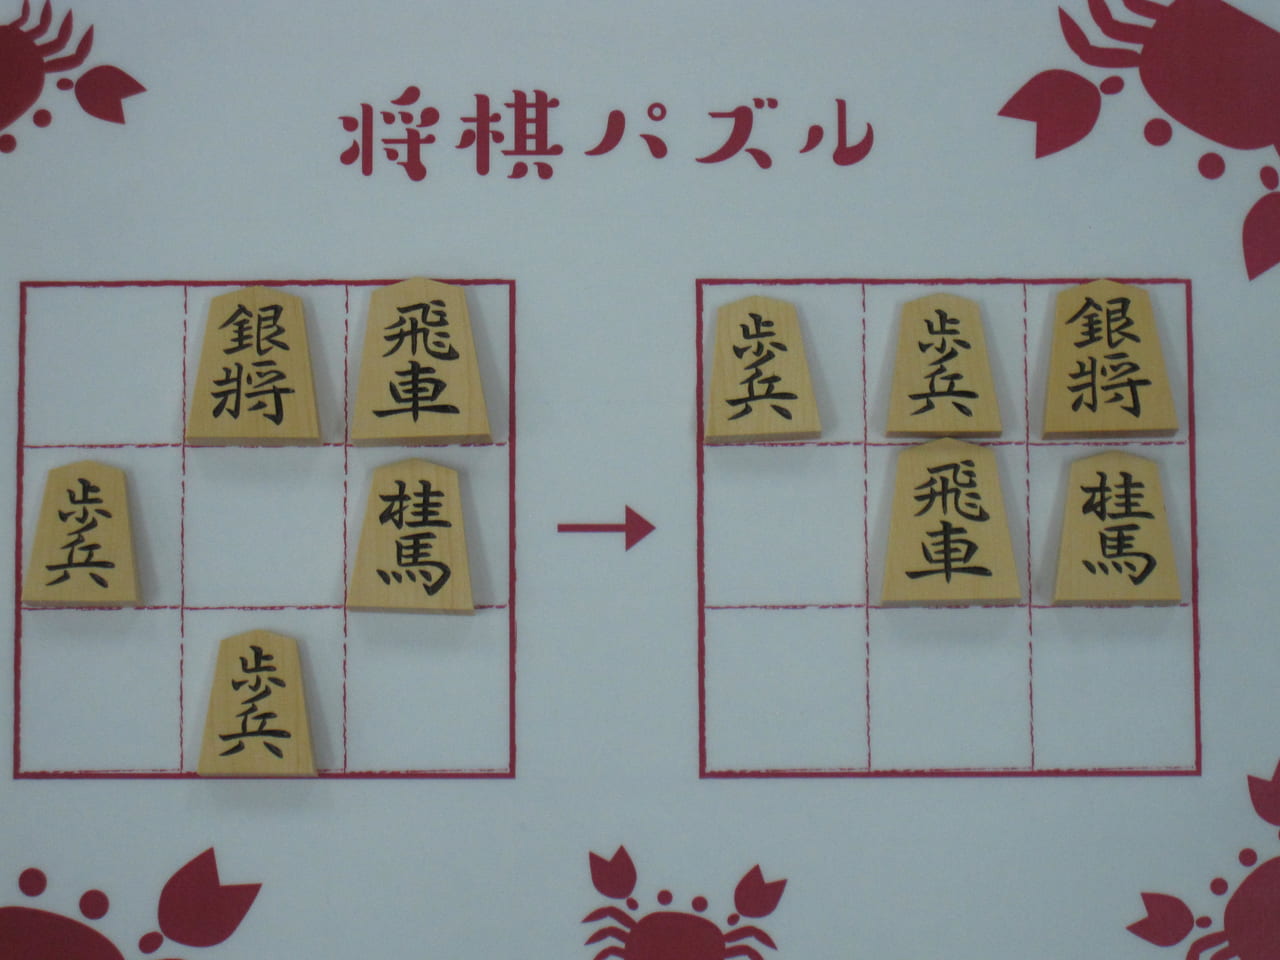 将棋パズル
銀将
飛車
歩兵
歩兵
銀将
歩兵
桂馬
飛車
桂馬
歩兵